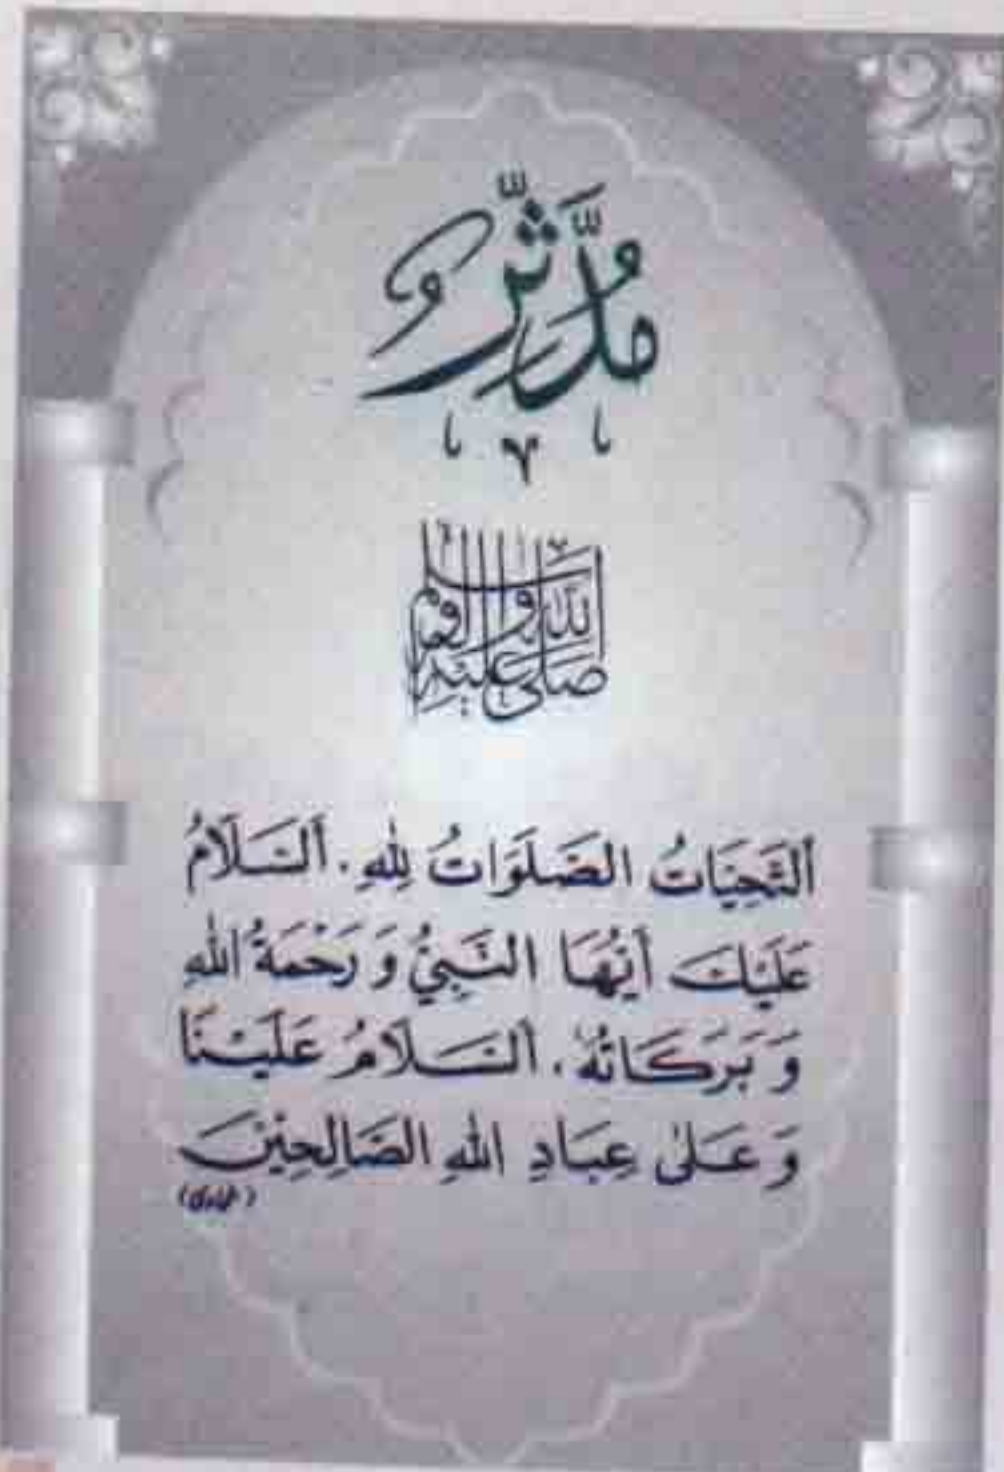 مُدَّثِّرُ
صَلَّى اللهُ عَلَيْهِ وَآلِهِ وَسَلَّم
اَلتَّحِيَاتُ الصَّلَوَاتُ لِلّٰهِ. اَلسَّلَامُ
عَلَيْكَ اَيُّهَا النَّبِيُّ وَ رَحْمَةُ اللهِ
وَ بَرَكَاتُهٗ، اَلسَّلَامُ عَلَيْنَا
وَ عَلٰى عِبَادِ اللهِ الصَّالِحِيْنَ